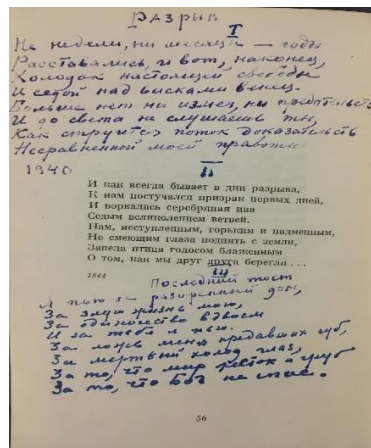 Разрыв
I
Не недели, ни месяцы — годы
Расставались, и вот, наконец,
Холодок настоящей свободы
И седой над висками венец.
Больше нет ни измен, ни предательств
И до света не слушаешь ты,
Как струится поток доказательств
Несравненной моей правоты
1940
II
И как всегда бывает в дни разрыва,
К нам постучался призрак первых дней,
И ворвалась серебряная ива
Седым великолепием ветвей.
Нам, исступленным, горьким и надменным,
Не смеющим глаза поднять с земли,
Запела птица голосом блаженным
О том, как мы друг друга берегли...
1944
III
Последний тост
Я пью за разоренный дом,
За злую жизнь мою,
За одиночество вдвоем
И за тебя я пью.
За ложь меня предавших губ,
За мертвый холод глаз,
За то, что мир жесток и груб
За то, что Бог не спас.
56